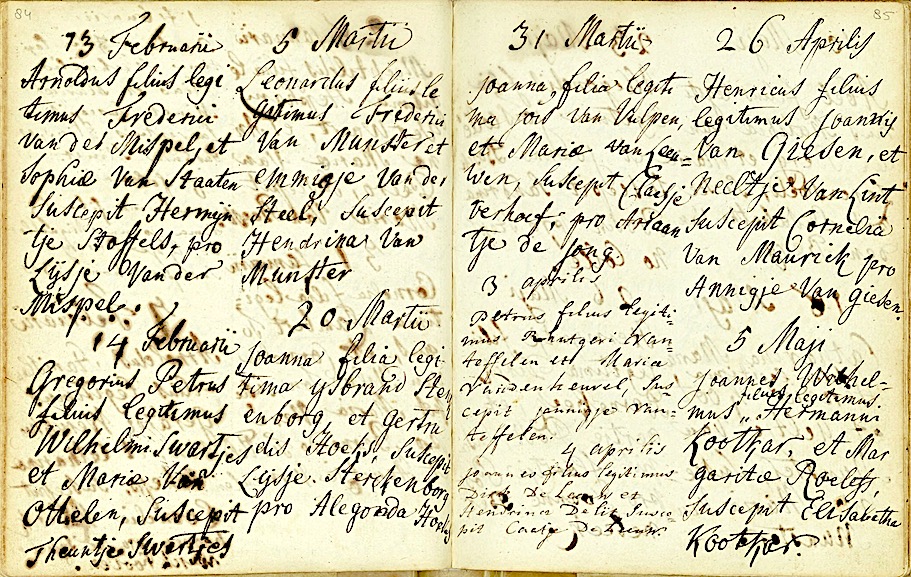 84
13 Februarii
Arnoldus filius legi
timus Frederici
vander Mispel, et
Sophiæ Van Staaten
Suscepit Hermijn
tje Stoffels, pro
Lijsje Vander
Mispel.
14 Februarii
Gregorius Petrus
filius legitimus
Wilhelmi Swartjes
et Mariæ Van
Ottelen, Suscepit
Theuntje Swertjes
5 Martii
Leonardus filius le
gitimus Frederici
Van Munster et
emmigje Vander
Steel, Suscepit
Hendrina Van
Munster
20 Martii
Joanna filia legi
tima ijsbrand Ster
enborg, et gertru
dis Hoefs, Suscepit
Lijsje Sterckenborg
pro Alegonda
85
31 Martii
Joanna, filia legiti
ma Jois Van Vulpen,
et Mariæ van Leeu=
wen, Suscepit Claesje
Verhoef; pro Ariaan
tje de Jong.
3 aprilis
Petrus filius legiti-
mus Rhutgeri Van=
toffelen et Maria
Vandenheuvel, Sus=
cepit jannigje Van=
toffelen.
4 aprilis
joannes filius legitimus
Dirk De Leeuw et
Hendrina Susce
pit De Leeuw.
26 Aprilis
Henricus filius
legitimus Joannis
Van Giesen, et
Neeltje Van Lint
Suscepit Cornelia
Van Maurick pro
Annigje Van Giesen.
5 Maji
Joannes Wilhel-
filius legitimus
mus Hermanni
Kootkar, et Mar
garitæ Roelofs,
Suscepit Elisabetha
Kootkar.